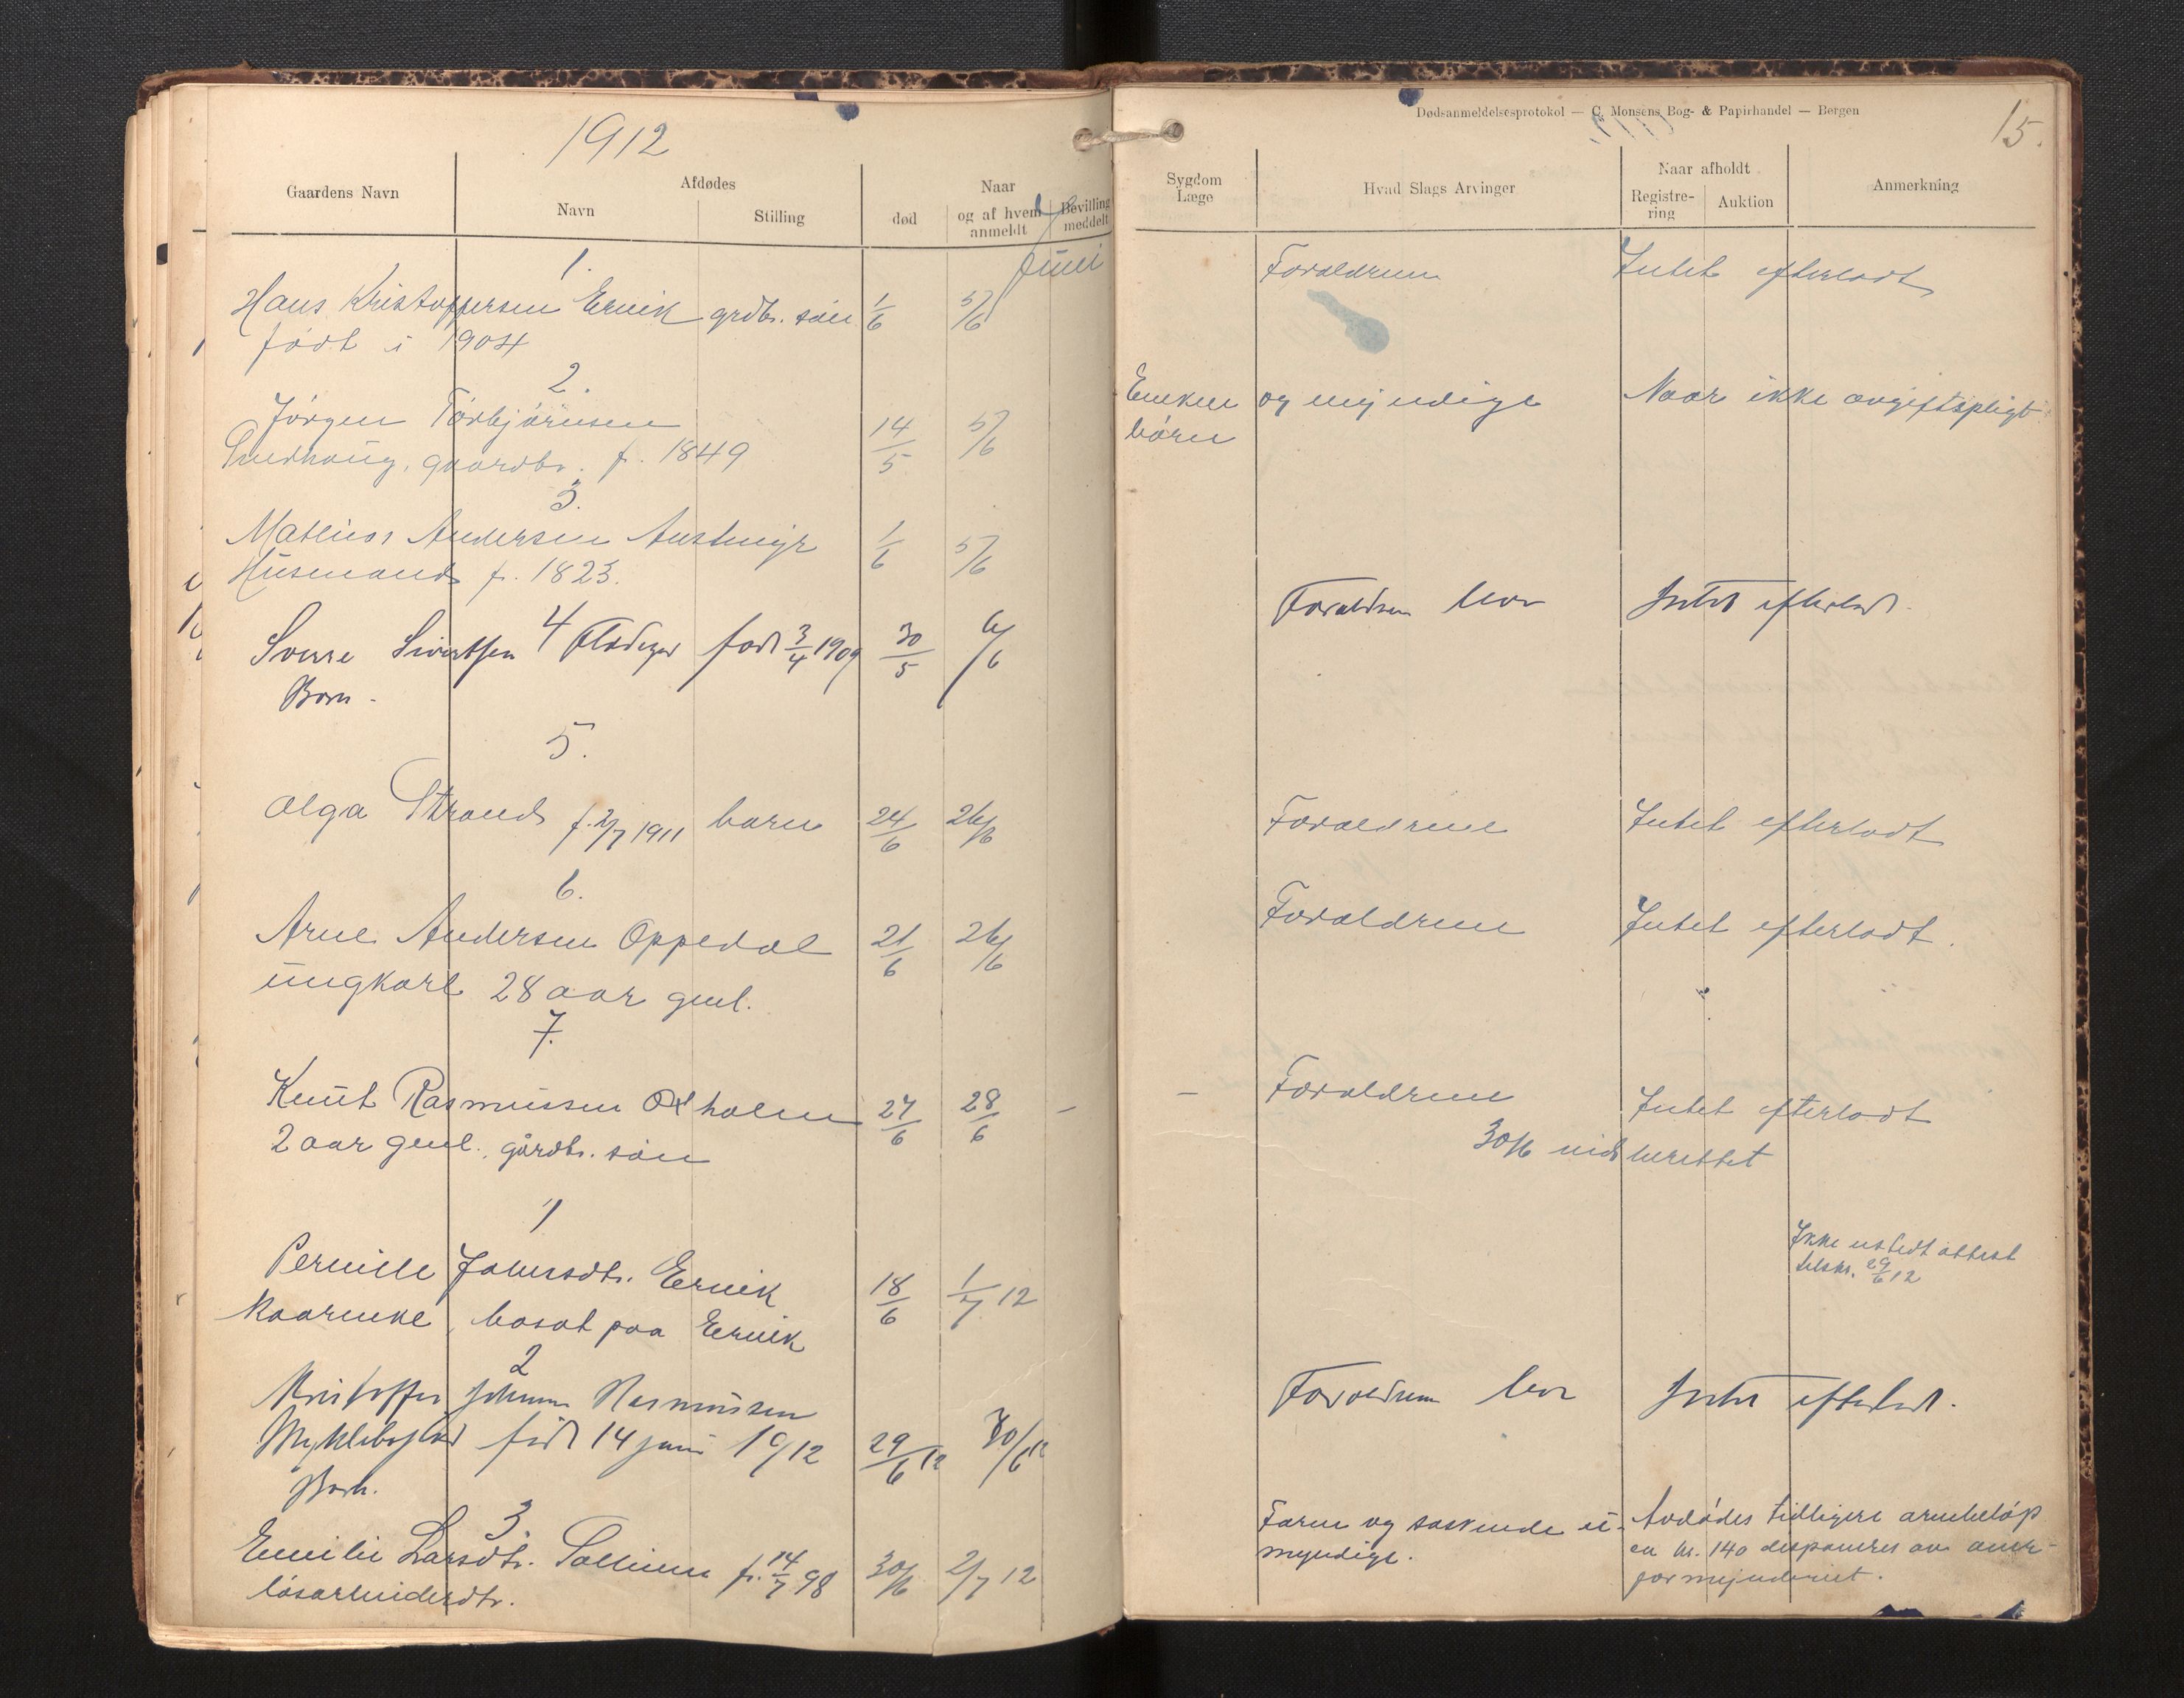 1912
Gaardens Navn
Afdødes
Navn
Stilling
Naar
død
og af hvem anmeldt
Bevilling meddelt
Juni
1.
Hans Kristoffersen Ervik grdbr. søn 1/6 5/6
født i 1904
2.
Jørgen Torbjørnsen
gaardbr. f. 1849 14/5 5/6
3.
Mathias Andersen 1/6 5/6
Husmand f. 1823.
4
Sverre Sivertsen født 3/4 1909 30/5 6/6
Barn.
5.
Olga Strand f. 2/7 1911 barn 24/6 26/6
6.
Arne Andersen Oppedal 21/6 26/6
ungkarl 28 aar gml.
7.
Knut Rasmussen Oxholm 27/6 28/6 –
2 aar gml., gårdbr. søn
1
Pernille Johnsdtr. Ervik 18/6 1/7 12
Kaarenke, bosat paa Ervik
2
Kristoffer Johann Rasmussen
Myklebost født 14 juni 1912 29/6 12 30/6 12
Barn.
3.
Emilie Larsdtr. f. 14/7 98 30/6 2/7 12
løsarbeiderdtr.
Dødsanmeldelsesprotokol — C. Monsens Bog- & Papirhandel — Bergen
15.
Sygdom Læge
Hvad Slags Arvinger
Naar afholdt
Registrering
Auktion
Anmerkning
Forældrene Intet efterladt
Enken og myndige Naar ikke avgiftspligt
børn
Forældrene lever Intet efterladt.
Forældrene Intet efterladt
Forældrene Intet efterladt.
– Forældrene Intet efterladt
30/6 indberettet
Ikke utstedt attest
tilskr. 29/6 12
Forældrene lever Intet efterladt.
Faren og søskende u- Avdødes tidligere arvebeløp
myndige. ca kr. 140 disponeres av over-
formynderiet.